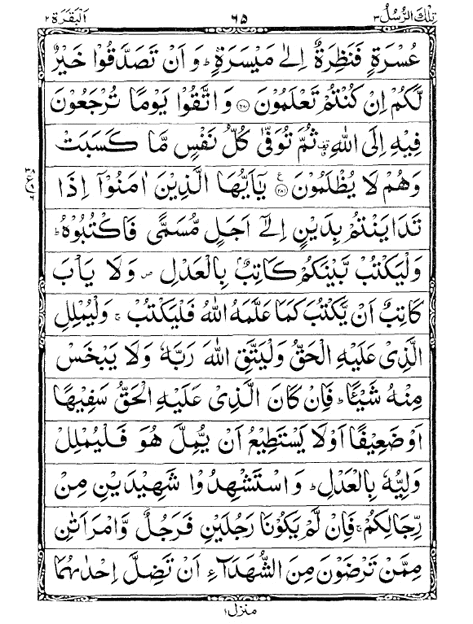 تِلْكَ الرُّسُلُ ٣ ٦٥ اَلْبَقَرَة ٢
عُسْرَةٍ فَنَظِرَةٌ اِلٰى مَيْسَرَةٍ ؕ وَ اَنْ تَصَدَّقُوْا خَيْرٌ
لَّكُمْ اِنْ كُنْتُمْ تَعْلَمُوْنَ ﴿۲۸۰﴾ وَاتَّقُوْا يَوْمًا تُرْجَعُوْنَ
فِيْهِ اِلَى اللّٰهِ ۫ ثُمَّ تُوَفّٰى كُلُّ نَفْسٍ مَّا كَسَبَتْ
وَهُمْ لَا يُظْلَمُوْنَ ﴿۲۸۱﴾ يٰۤاَيُّهَا الَّذِيْنَ اٰمَنُوْۤا اِذَا
تَدَايَنْتُمْ بِدَيْنٍ اِلٰۤى اَجَلٍ مُّسَمًّى فَاكْتُبُوْهُ ؕ
وَلْيَكْتُبْ بَّيْنَكُمْ كَاتِبٌۢ بِالْعَدْلِ ۪ وَلَا يَاْبَ
كَاتِبٌ اَنْ يَّكْتُبَ كَمَا عَلَّمَهُ اللّٰهُ فَلْيَكْتُبْ ۚ وَلْيُمْلِلِ
الَّذِيْ عَلَيْهِ الْحَقُّ وَلْيَتَّقِ اللّٰهَ رَبَّهٗ وَلَا يَبْخَسْ
مِنْهُ شَيْـًٔا ؕ فَاِنْ كَانَ الَّذِيْ عَلَيْهِ الْحَقُّ سَفِيْهًا
اَوْ ضَعِيْفًا اَوْ لَا يَسْتَطِيْعُ اَنْ يُّمِلَّ هُوَ فَلْيُمْلِلْ
وَلِيُّهٗ بِالْعَدْلِ ؕ وَاسْتَشْهِدُوْا شَهِيْدَيْنِ مِنْ
رِّجَالِكُمْ ۚ فَاِنْ لَّمْ يَكُوْنَا رَجُلَيْنِ فَرَجُلٌ وَّامْرَاَتٰنِ
مِمَّنْ تَرْضَوْنَ مِنَ الشُّهَدَآءِ اَنْ تَضِلَّ اِحْدٰىهُمَا
منزل ١